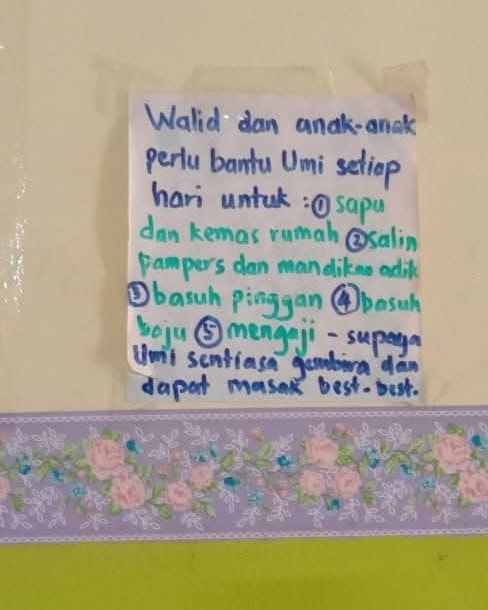 Walid dan anak-anak
perlu bantu Umi setiap
hari untuk : ① sapu
dan kemas rumah ② salin
pampers dan mandikan adik
③ basuh pinggan ④ basuh
baju ⑤ mengaji - supaya
Umi sentiasa gembira dan
dapat masak best-best.